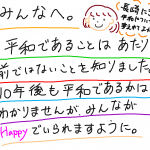 みんなへ。
長崎に
平和であることは あたり
前ではないことを知りました。
10年後も平和であるかは
わかりませんが、みんなが
Happyでいられますように。